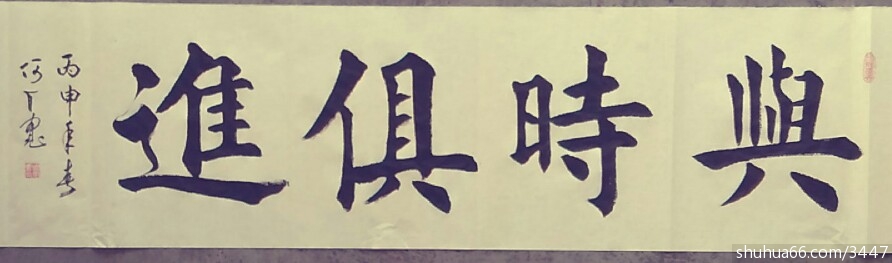 與時俱進
丙申年春
何丁
shuhua66.com/3447